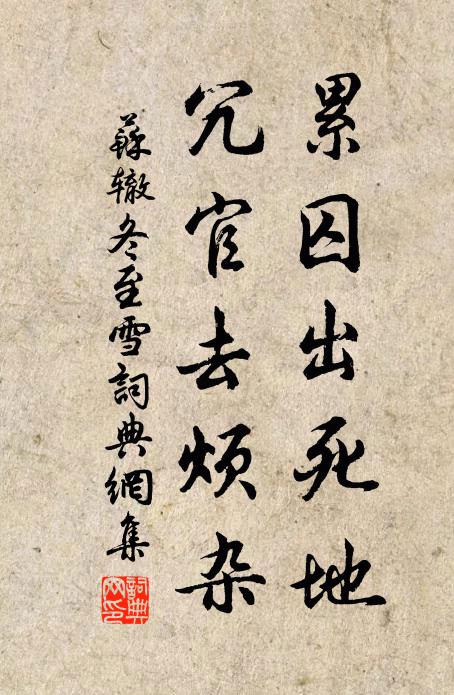 累囚出死地
冗官去烦杂
蘇辙冬至雪詞典網集
詞典
网印